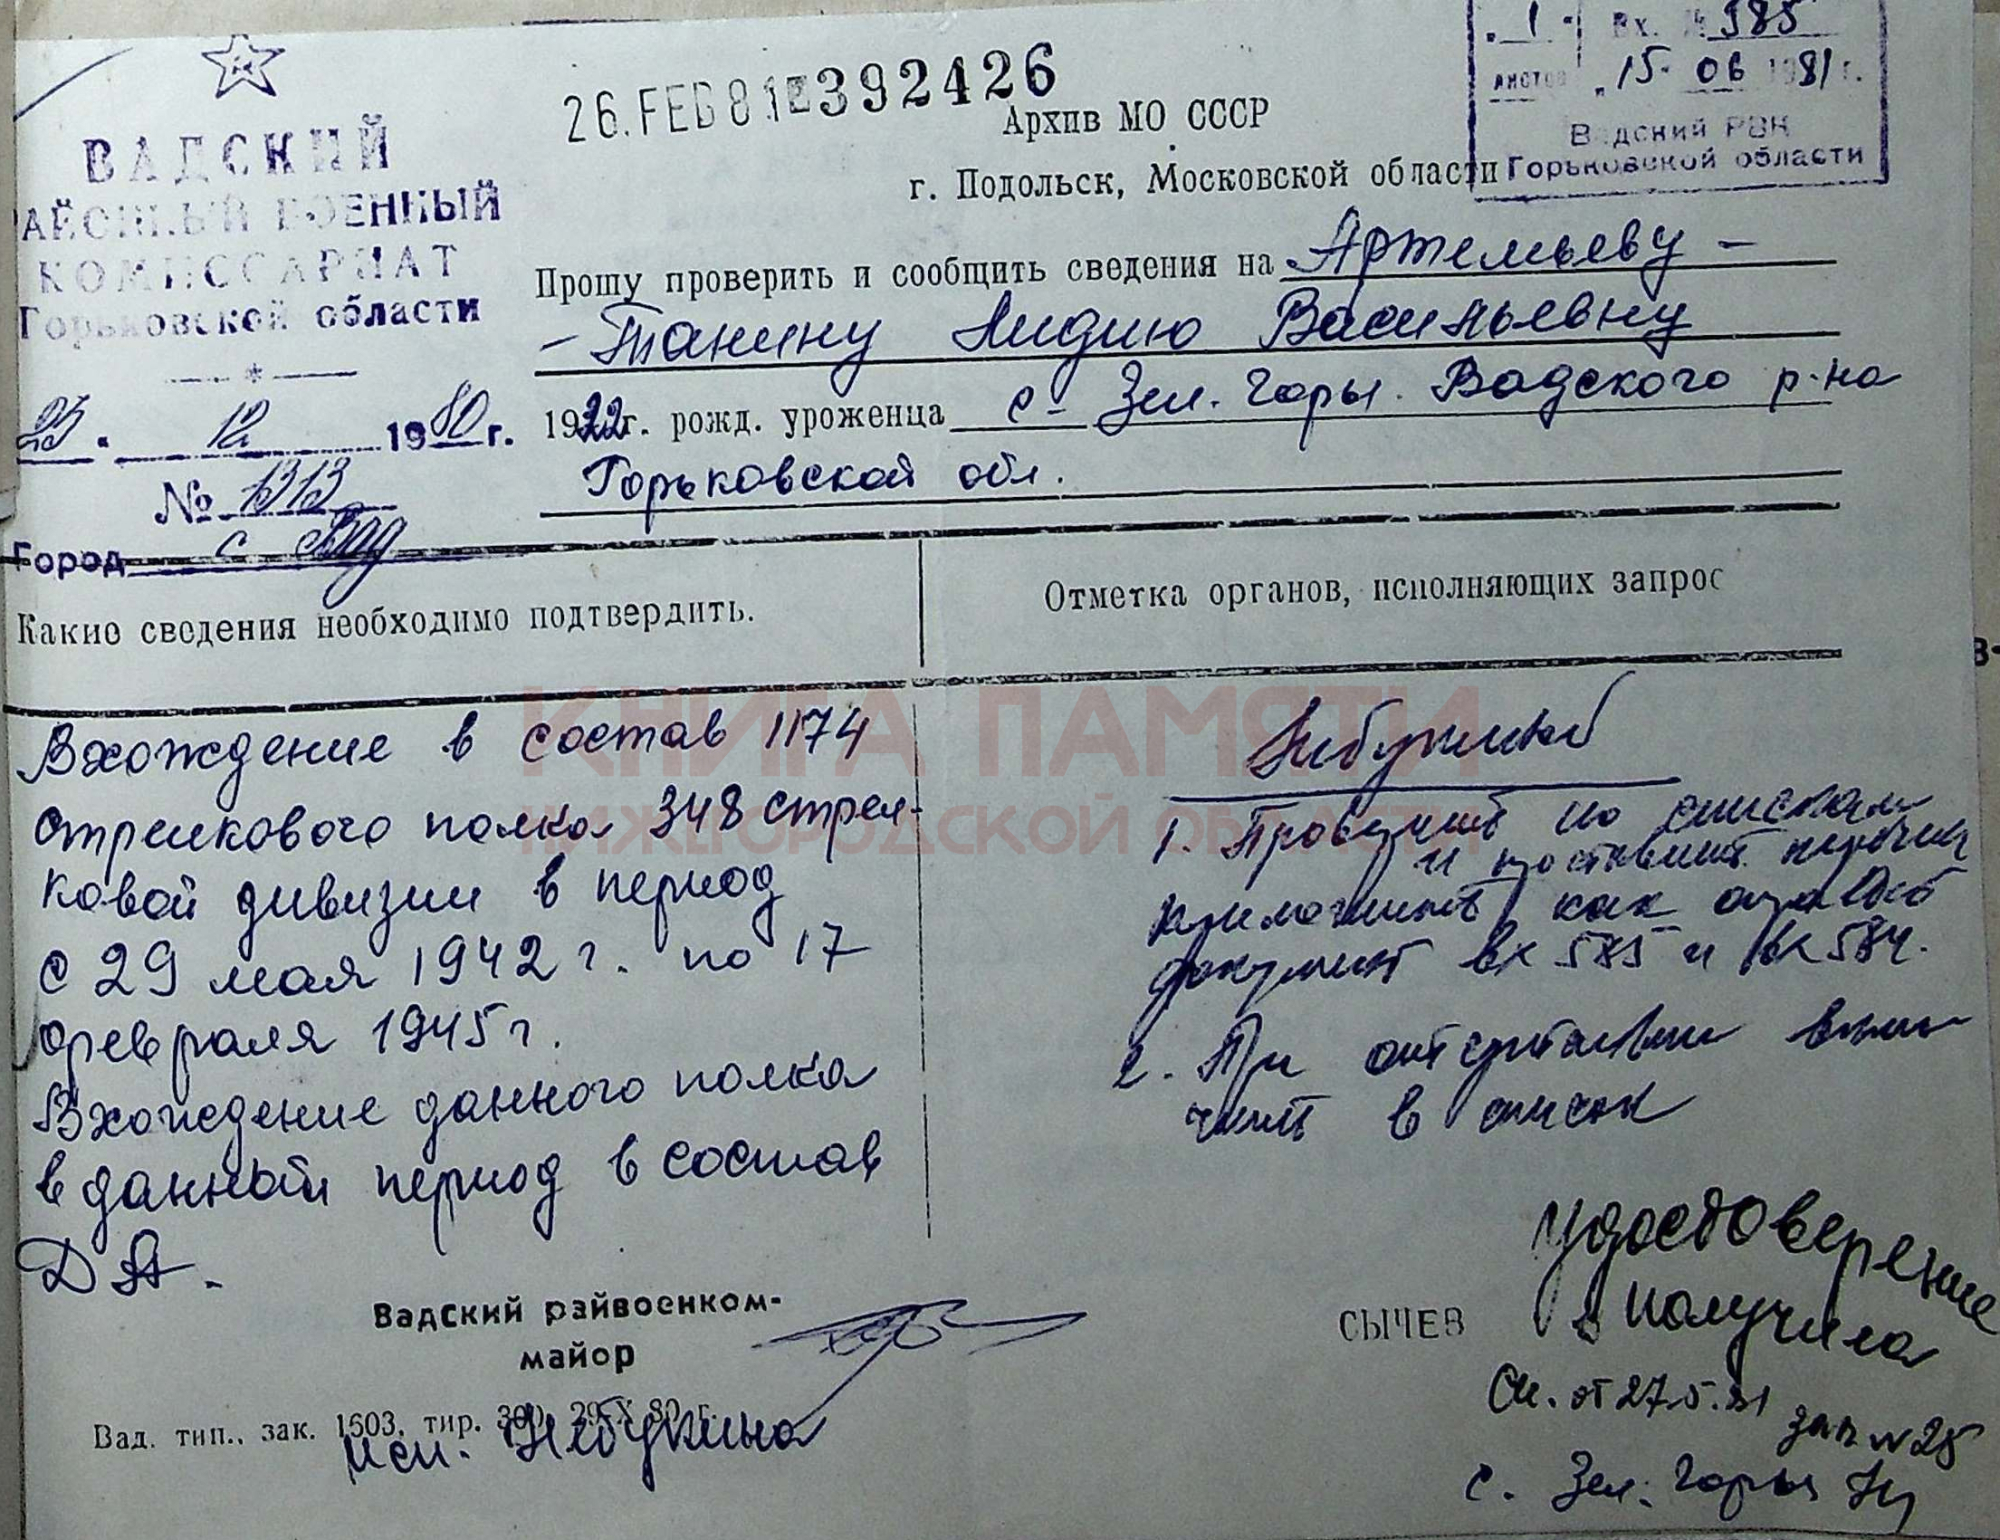 ВАДСКИЙ
РАЙОННЫЙ ВОЕННЫЙ
КОМИССАРИАТ
Горьковской области
23. 12 1980 г.
№ 1313
Город с Вад
26.FEB 81 392426
Архив МО СССР
г. Подольск, Московской области
1 Вх. № 585
листов "15" 06 1981 г.
Вадский РВК
Горьковской области
Прошу проверить и сообщить сведения на Артемьеву -
- Танину Лидию Васильевну
1922г. рожд. уроженца с. Зел. Горы. Вадского р-на
Горьковской обл.
Какие сведения необходимо подтвердить.
Отметка органов, исполняющих запрос
Вхождение в состав 1174
стрелкового полка 348 стрел-
ковой дивизии в период
с 29 мая 1942 г. по 17
февраля 1945 г.
Вхождение данного полка
в данный период в состав
ДА.
Вадский райвоенком-
майор
СЫЧЕВ
Вад. тип., зак. 1603, тир. 300, 29.X.80 г.
исп. Чибужина
1. Проверить по спискам
и
как
документ вх 585 и вх 584.
2. При отсутствии вклю-
чить в список
удостоверение
получила
от 27.5.81
зап № 25
с. Зел. Горы
КНИГА ПАМЯТИ
НИЖЕГОРОДСКОЙ ОБЛАСТИ